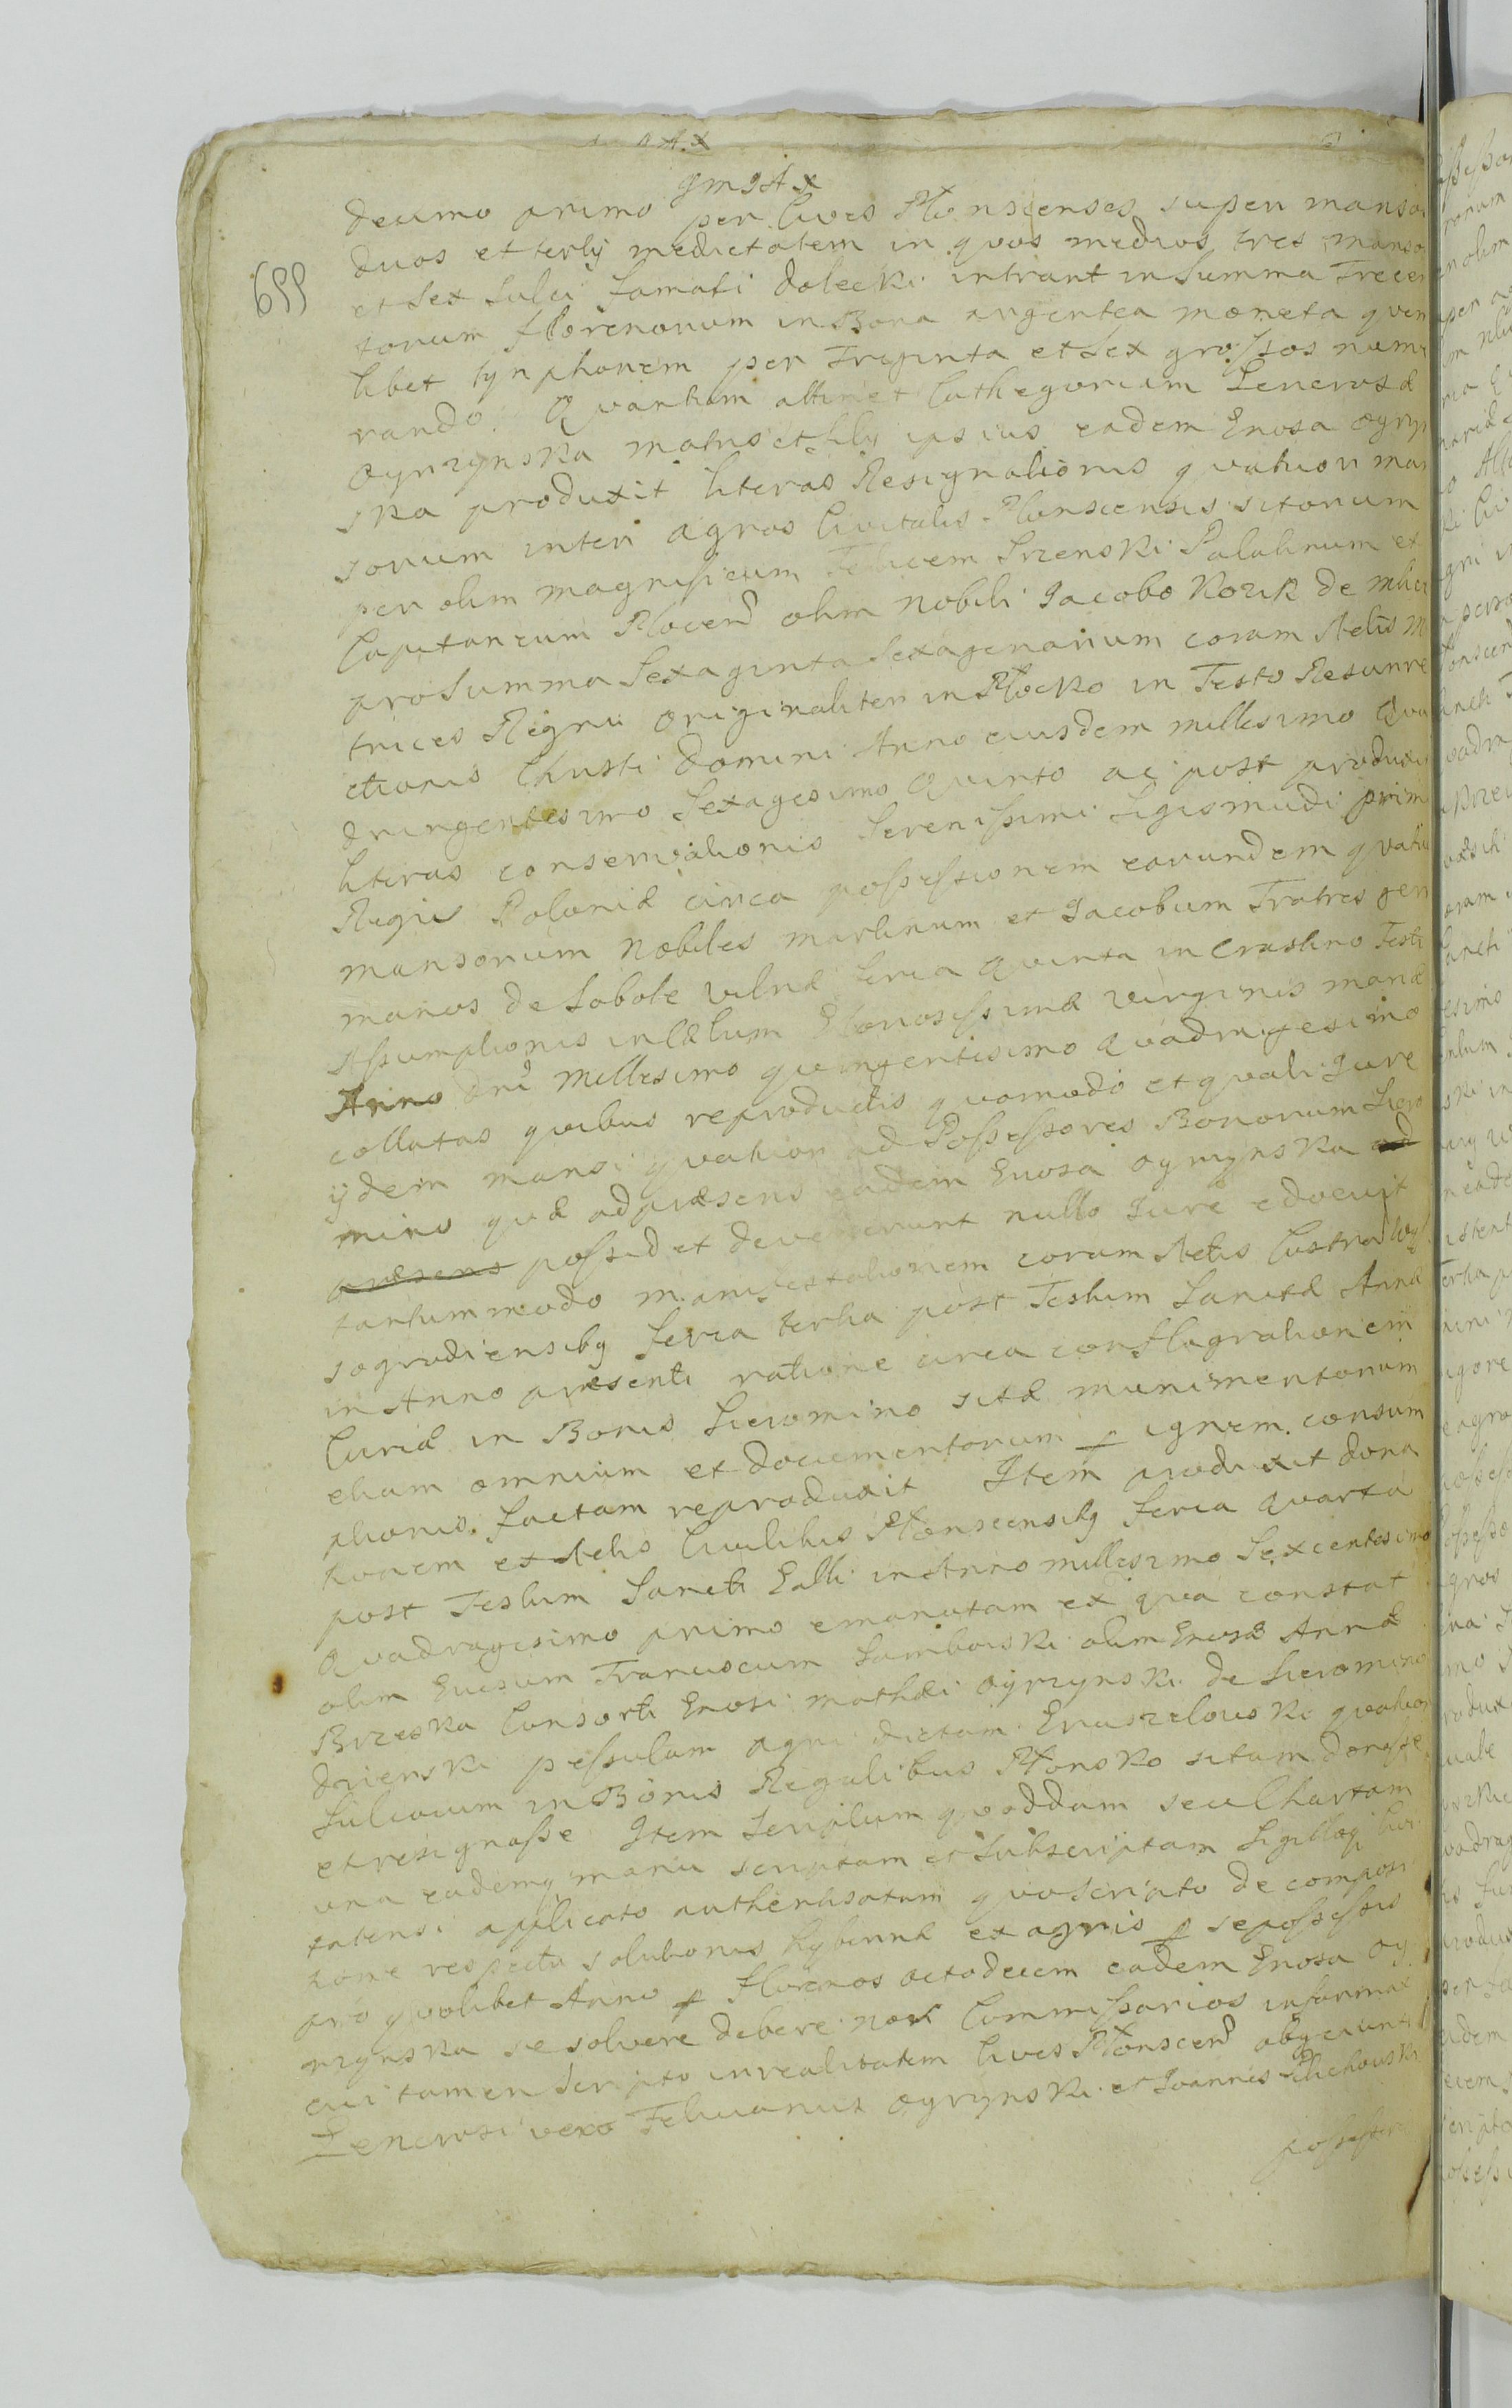 JmJAx
decimo primo per Cives Płonscenses super manso
duos et tertÿ medietatem in quos medios tres manso
699
et sex sulci famati dolecki intrant in summa Trecen
torum florenorum in Bona argentea moneta quem
libet tynphonem per Triginta et sex grossos nume
rando. Quantum attinet Cathegoriam Generosæ
Oyrzynska matris et filÿ ipsius eadem Gnosa Oyrzÿ
ska produxit literas Resignationis quatuor man
sorum inter agros Civitatis Płonscensis sitorum
per olim magnificum Felicem Srzenski Palatinum et
Capitaneum Plocens olim Nobili Jacobo Kozik de
pro summa Sexaginta Sexagenarium coram Actis M
trices Regni originaliter in Płocko in Festo Resurre
ctionis Christi Domini Anno eiusdem millesimo Qua
dringentesimo Sexagesimo Quinto ac post produxit
literas conservationis Serenissimi Sigismudi primi
Regis Poloniæ circa possessionem eorundem quatuo
mansorum Nobiles Martinum et Jacobum Fratres ger
manos de Sobole Vilnæ feria Quinta in Crastino Festi
Assumptionis in Cælum Gloriosissimæ Virginis Mariæ
Anno Dni Millesimo quingentesimo Quadragesimo
collatas quibus reproductis quomodo et quali Jure
ÿdem mansi quatuor ad Possessores Bonorum Siero
mino quæ ad præsens eadem Gnosa Oyrzynska ad
præsens possidet devenerunt nullo Jure edocuit
tantummodo manifestationem coram Actis Castren Wy
sogrodiensibq feria tertia post Festum Sanctæ Annæ
in Anno præsenti ratione circa conflagrationem
Curiæ in Bonis Sieromino sitæ munimentorum
etiam omnium et documentorum p ignem consum
ptionis factam reproduxit Item produxit dona
tionem ex Actis Civilibus Płonscensibq feria Quarta
post Festum Sancti Galli in Anno millesimo Sexcentesimo
Quadragesimo primo emanatam ex qua constat
olim Gnosum Franciscum Samborski olim Gnosæ Annæ
Brzeska Consorti Gnosi Mathæi Oyrzynski de Sieromino
drienski pessulam agri dictam Gruszelowski quatuor
Sulcorum in Bonis Regalibus Płonsko sitam donasse
et resignasse Item Scriptum quoddam seu Chartam
una eademq manu scriptam et subscriptam Sigilloq Civi
tatensi applicato authentisatum quo scripto de composi
tione respectu solutionis hybernæ ex agris p se possessis
pro quolibet Anno p florenos octodecem eadem Gnosa Oy
rzynska se solvere debere nos Commissarios informat
cui tamen scripto in realitatem Cives Płonscens obÿciunt
Generosi vero Felicianus Oyrzynski et Joannes Pilichowski
possessores